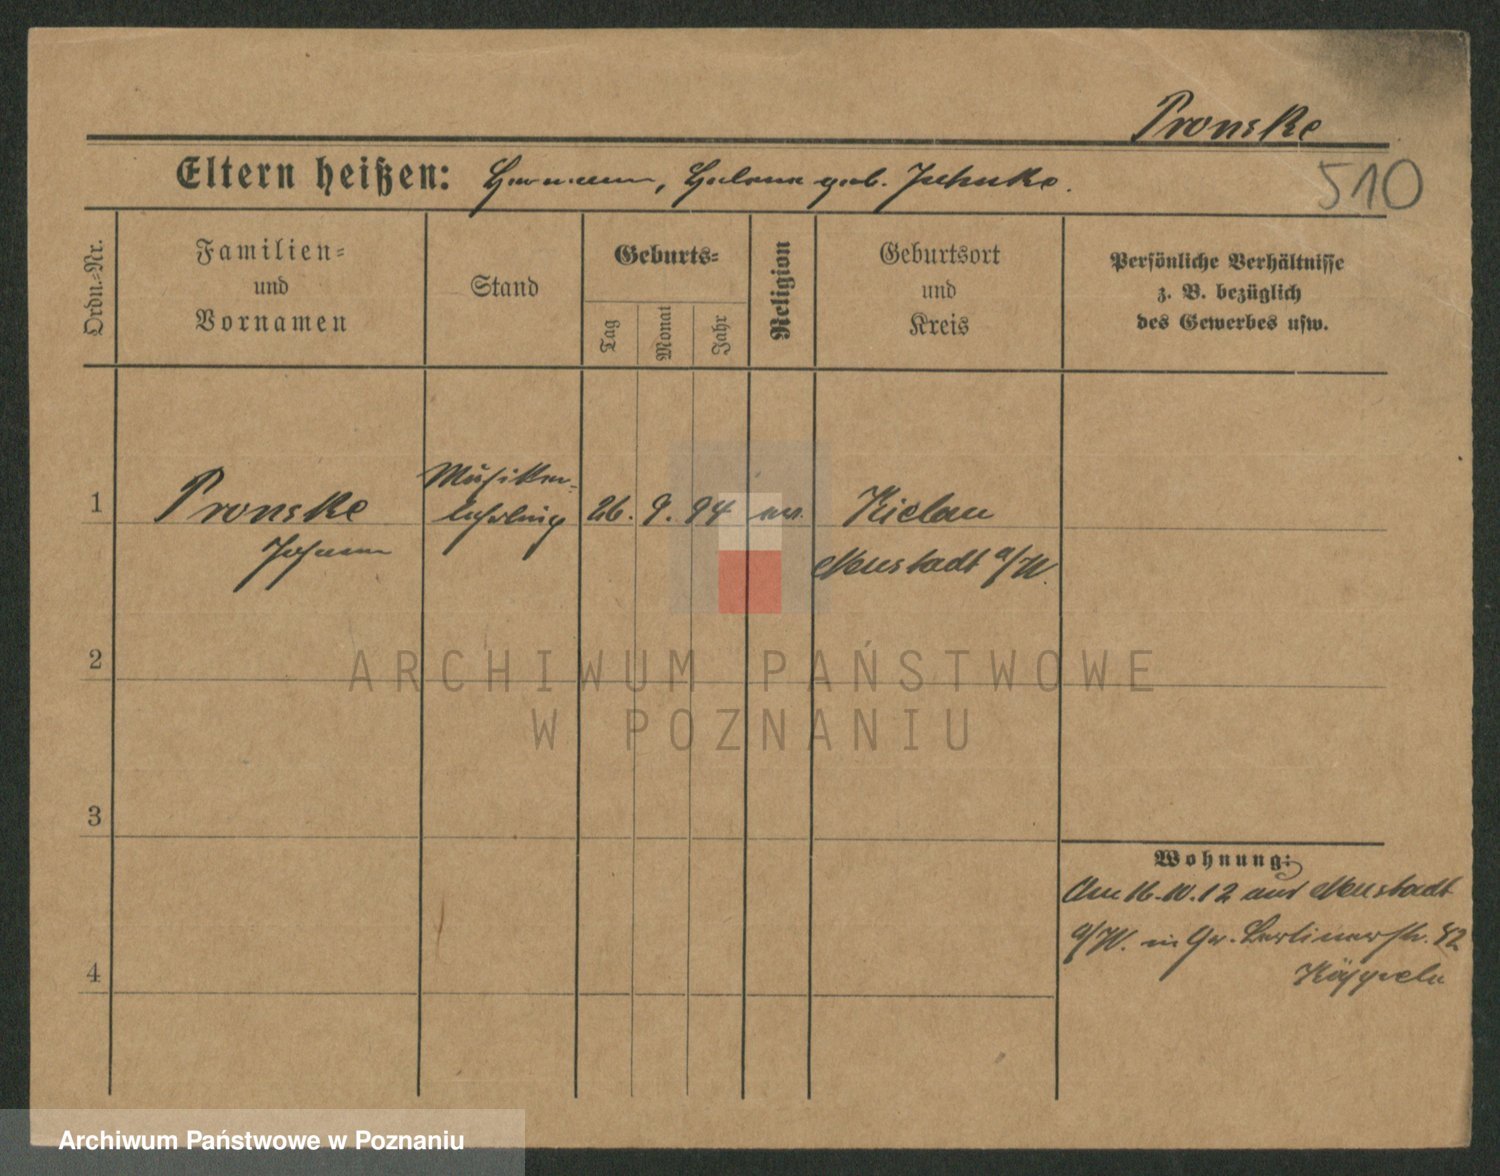 Pronske
510
Eltern heißen: Hermann, Helene geb. Jahnke.
Ordn.-Nr.
Familien-
und
Vornamen
Stand
Geburts-
Tag
Monat
Jahr
Religion
Geburtsort
und
Kreis
Persönliche Verhältnisse
z. B. bezüglich
des Gewerbes usw.
1
Pronske
Johann
Musiker-
lehrling
26. 9. 94
ev.
Kielau
Neustadt a/W.
2
ARCHIWUM PAŃSTWOWE
W POZNANIU
3
Wohnung:
Am 16.10.12 aus Neustadt
a/W. in Gr. Berlinerstr. 82
4
Archiwum Państwowe w Poznaniu